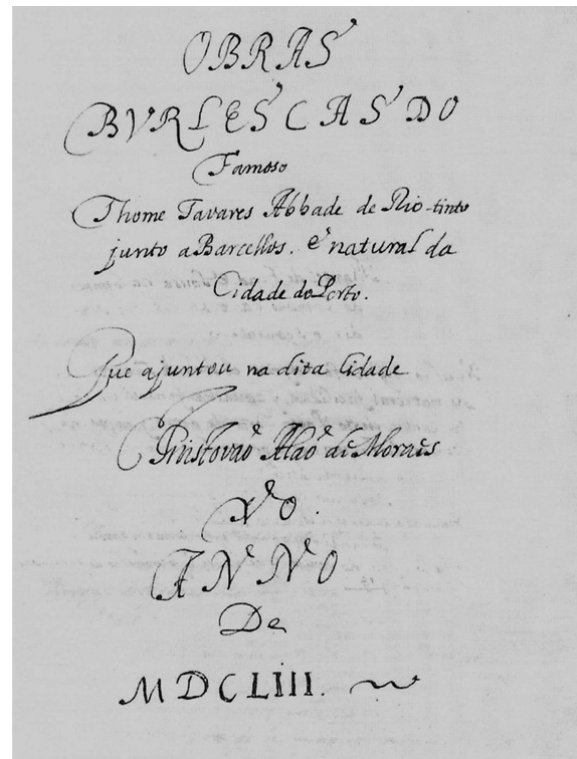 OBRAS
BVRLESCAS DO
Famoso
Thome Tavares Abbade de Rio-tinto
junto a Barcellos. e natural da
Cidade do Porto.
Que ajuntou na dita Cidade
Christovaõ Alaõ de Moraes
No
ANNO
De
MDCLIII.